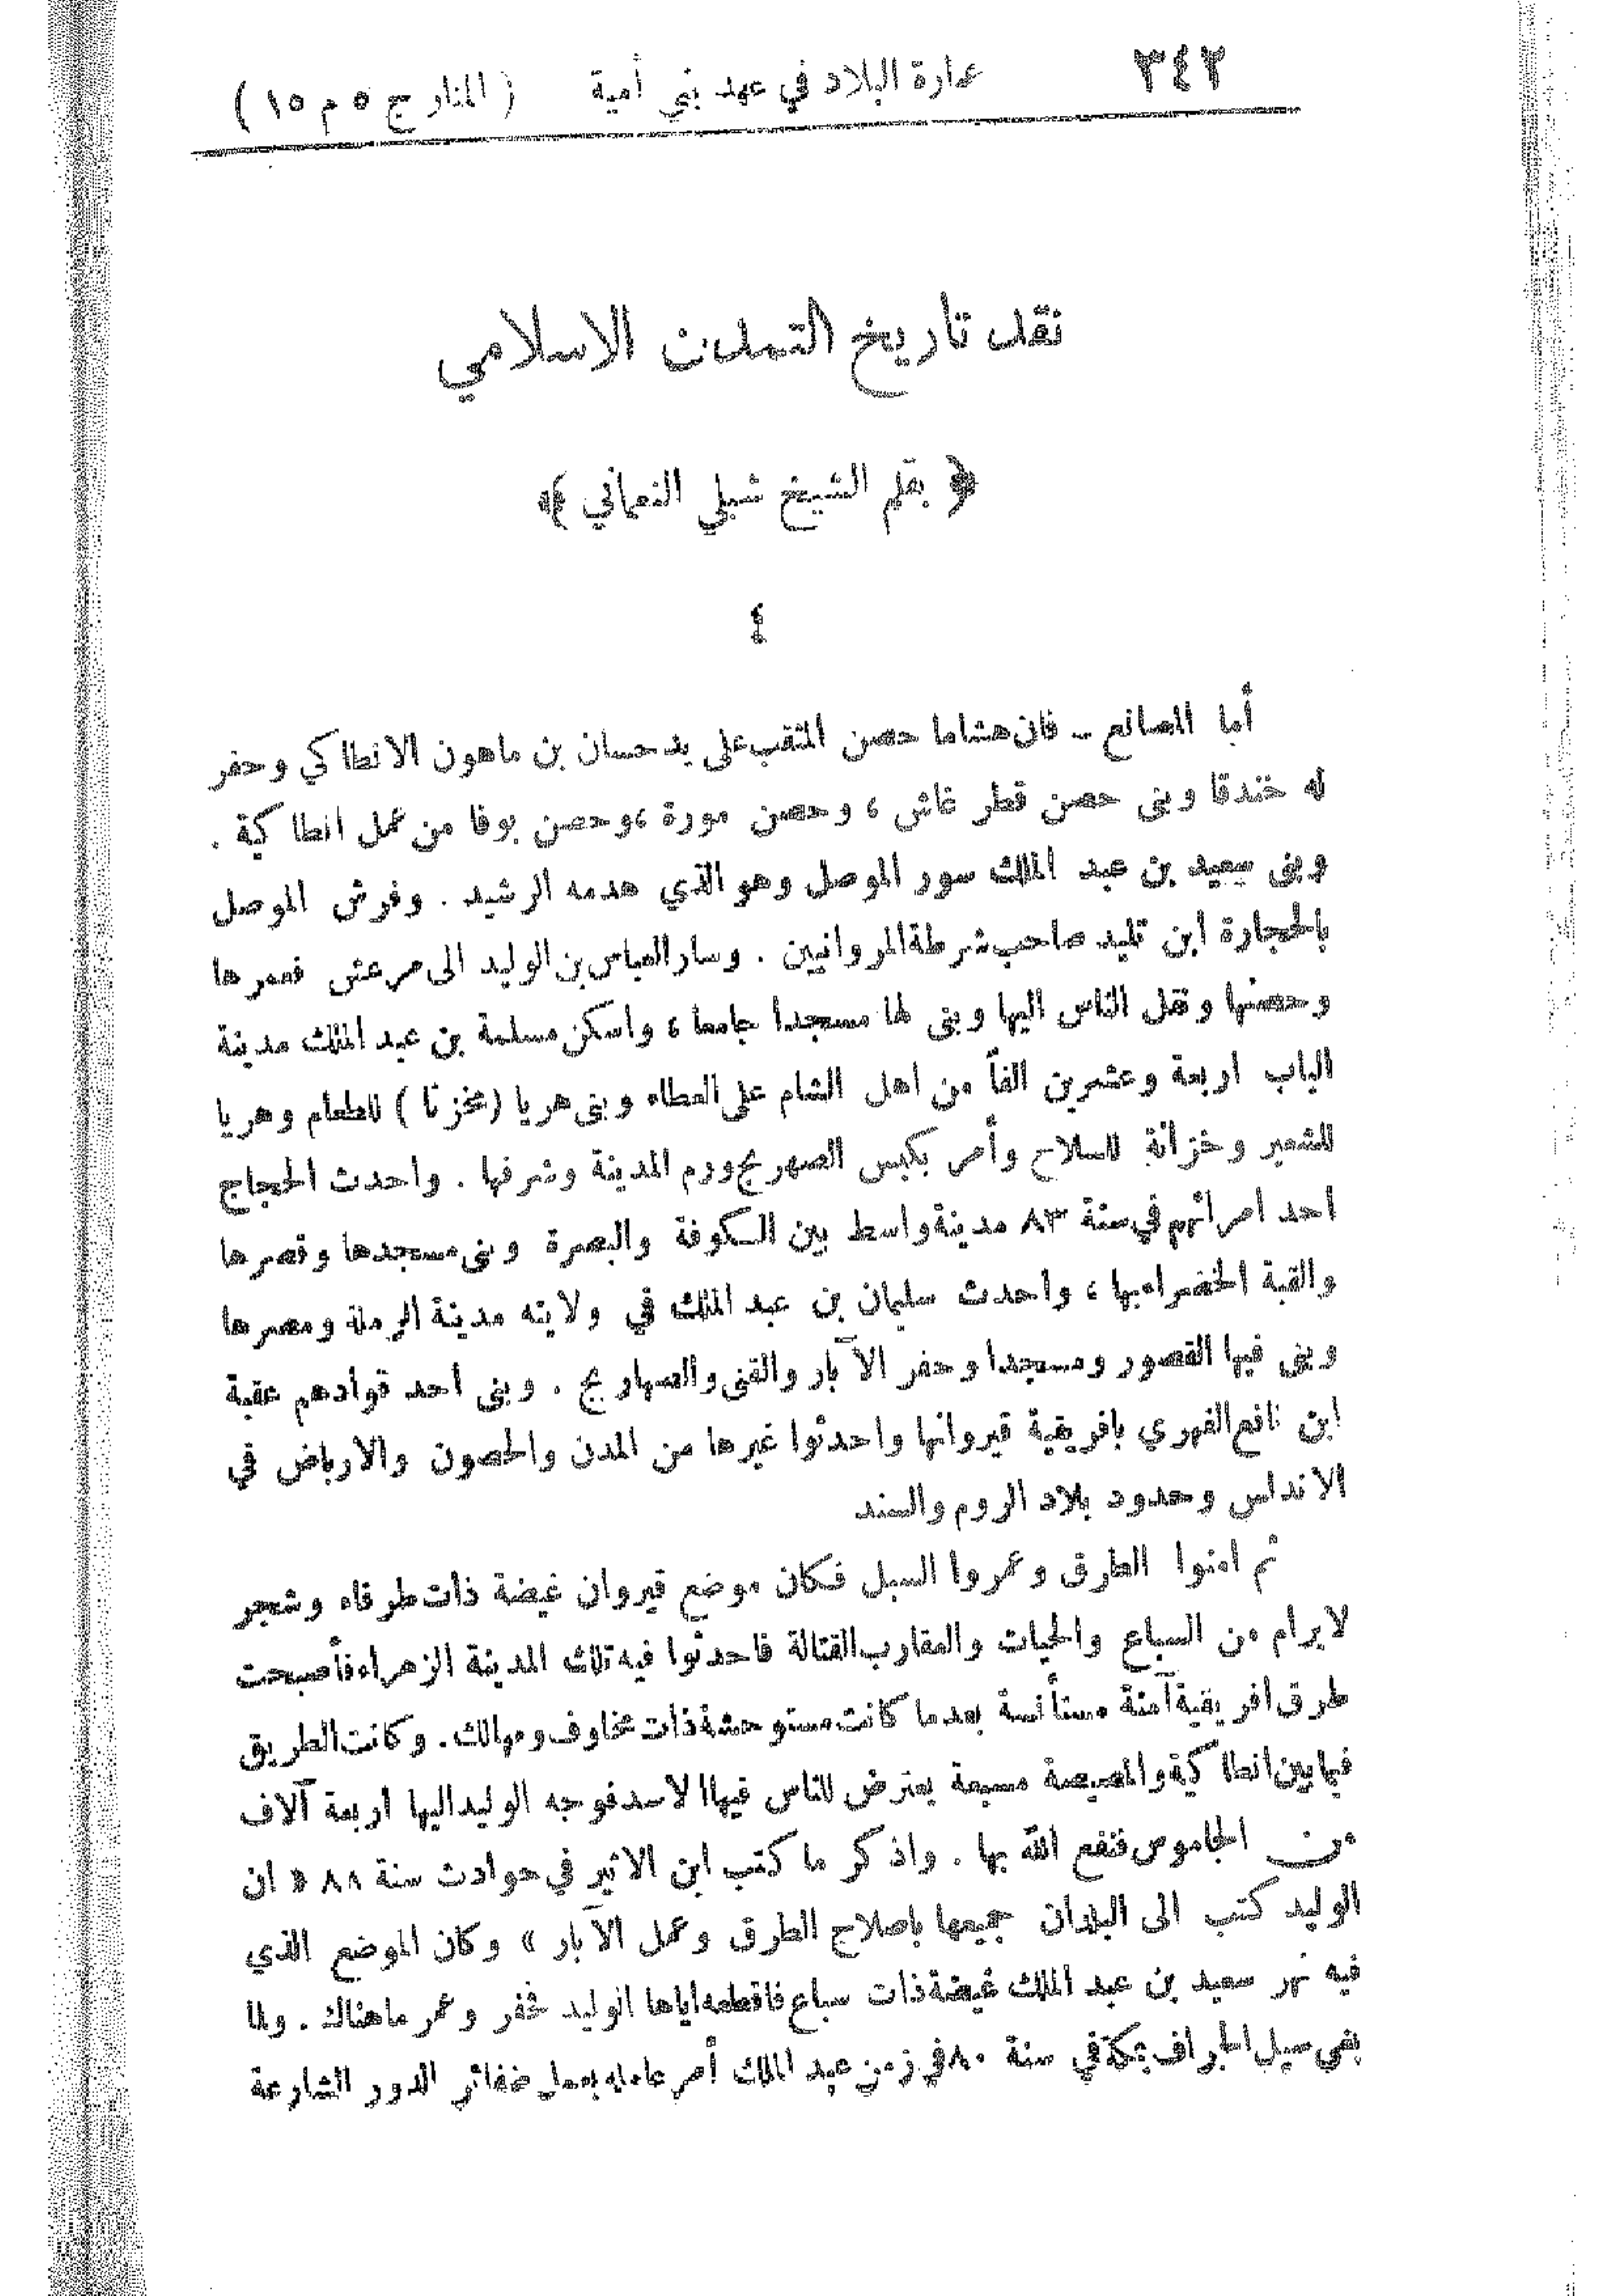 ٣٤٢ عمارة البلاد في عهد بني أمية ( المنار ج ٥ م ١٥ )
نقد تاريخ التمدن الاسلامي
﴿ بقلم الشيخ شبلي النعماني ﴾
٤
أما المصانع – فان هشاما حصن المثقب على يد حسان بن ماهون الانطاكي وحفر
له خندقا وبنى حصن قطر غاش ، وحصن مورة ، وحصن بوقا من عمل انطاكية .
وبنى سعيد بن عبد الملك سور الموصل وهو الذي هدمه الرشيد . وفرش الموصل
بالحجارة ابن تليد صاحب شرطة المروانيين . وسار العباس بن الوليد الى مرعش فعمرها
وحصنها ونقل الناس اليها وبنى لها مسجدا جامعا ، واسكن مسلمة بن عبد الملك مدينة
الباب اربعة وعشرين الفاً من اهل الشام على العطاء وبنى هريا (مخزنا ) للطعام وهريا
للشعير وخزانة للسلاح وأمر بكبس الصهريج ورم المدينة وشرفها . واحدث الحجاج
احد امرائهم في سنة ٨٣ مدينة واسط بين الكوفة والبصرة وبنى مسجدها وقصرها
والقبة الخضراء بها ، واحدث سليمان بن عبد الملك في ولايته مدينة الرملة ومصرها
وبنى فيها القصور ومسجدا وحفر الآبار والقنى والصهاريج . وبنى احد قوادهم عقبة
ابن نافع الفهري بافريقية قيروانها واحدثوا غيرها من المدن والحصون والارباض في
الاندلس وحدود بلاد الروم والسند
ثم امنوا الطرق وعمروا السبل فكان موضع قيروان غيضة ذات طرفاء وشجر
لا يرام من السباع والحيات والعقارب القتالة فاحدثوا فيه تلك المدينة الزهراء فأصبحت
طرق افريقية آمنة مستأنسة بعدما كانت مستوحشة ذات مخاوف ومهالك . وكانت الطريق
فيما بين انطاكية والمصيصة مسبعة يعترض للناس فيها الاسد فوجه الوليد اليها اربعة آلاف
من الجاموس فنفع الله بها . واذكر ما كتب ابن الاثير في حوادث سنة ٨٨ « ان
الوليد كتب الى البلدان جميعها باصلاح الطرق وعمل الآبار » وكان الموضع الذي
فيه نهر سعيد بن عبد الملك غيضة ذات سباع فاقطعه اياها الوليد فحفر وعمر ما هناك . ولما
بغى سيل الجراف بمكة في سنة ٨٠ في زمن عبد الملك أمر عامله بعمل ضفائر الدور الشارعة